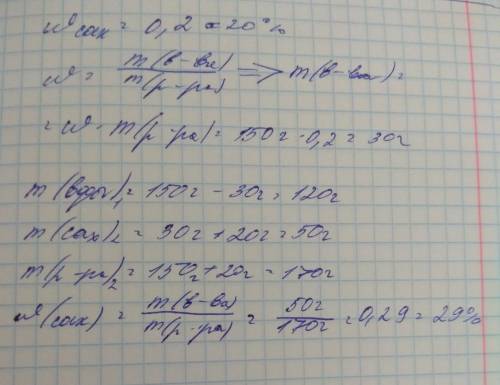 ω сах = 0,2 = 20%
ω = m(в-ва) / m(р-ра) => m(в-ва) =
= ω · m(р-ра) = 150г · 0,2 = 30г
m(воды)₁ = 150г - 30г = 120г
m(сах)₂ = 30г + 20г = 50г
m(р-ра)₂ = 150г + 20г = 170г
ω(сах) = m(в-ва) / m(р-ра) = 50г / 170г = 0,29 = 29%